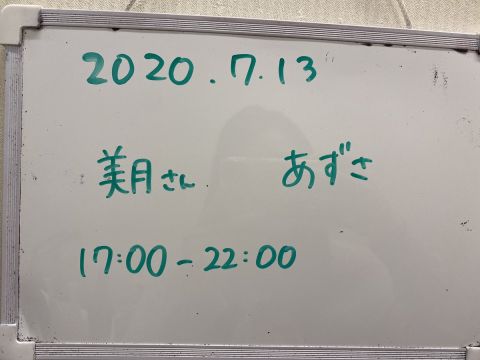 2020.7.13
美月さん あずさ
17:00-22:00